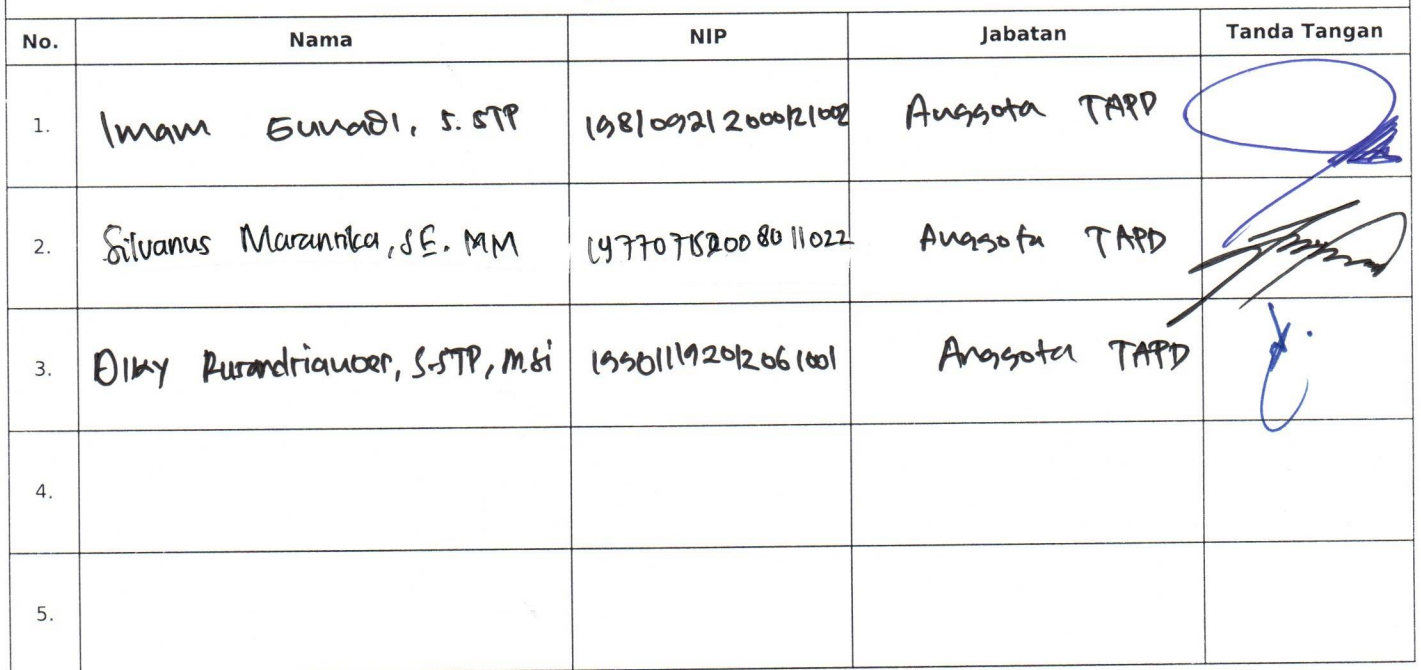 No. Nama NIP Jabatan Tanda Tangan
1. Imam Gunadi, S. STP 198109212000121002 Anggota TAPD
2. Silvanus Marannika, SE. MM 197707152008011022 Anggota TAPD
3. S.STP, M.Si 199011192012061001 Anggota TAPD
4.
5.